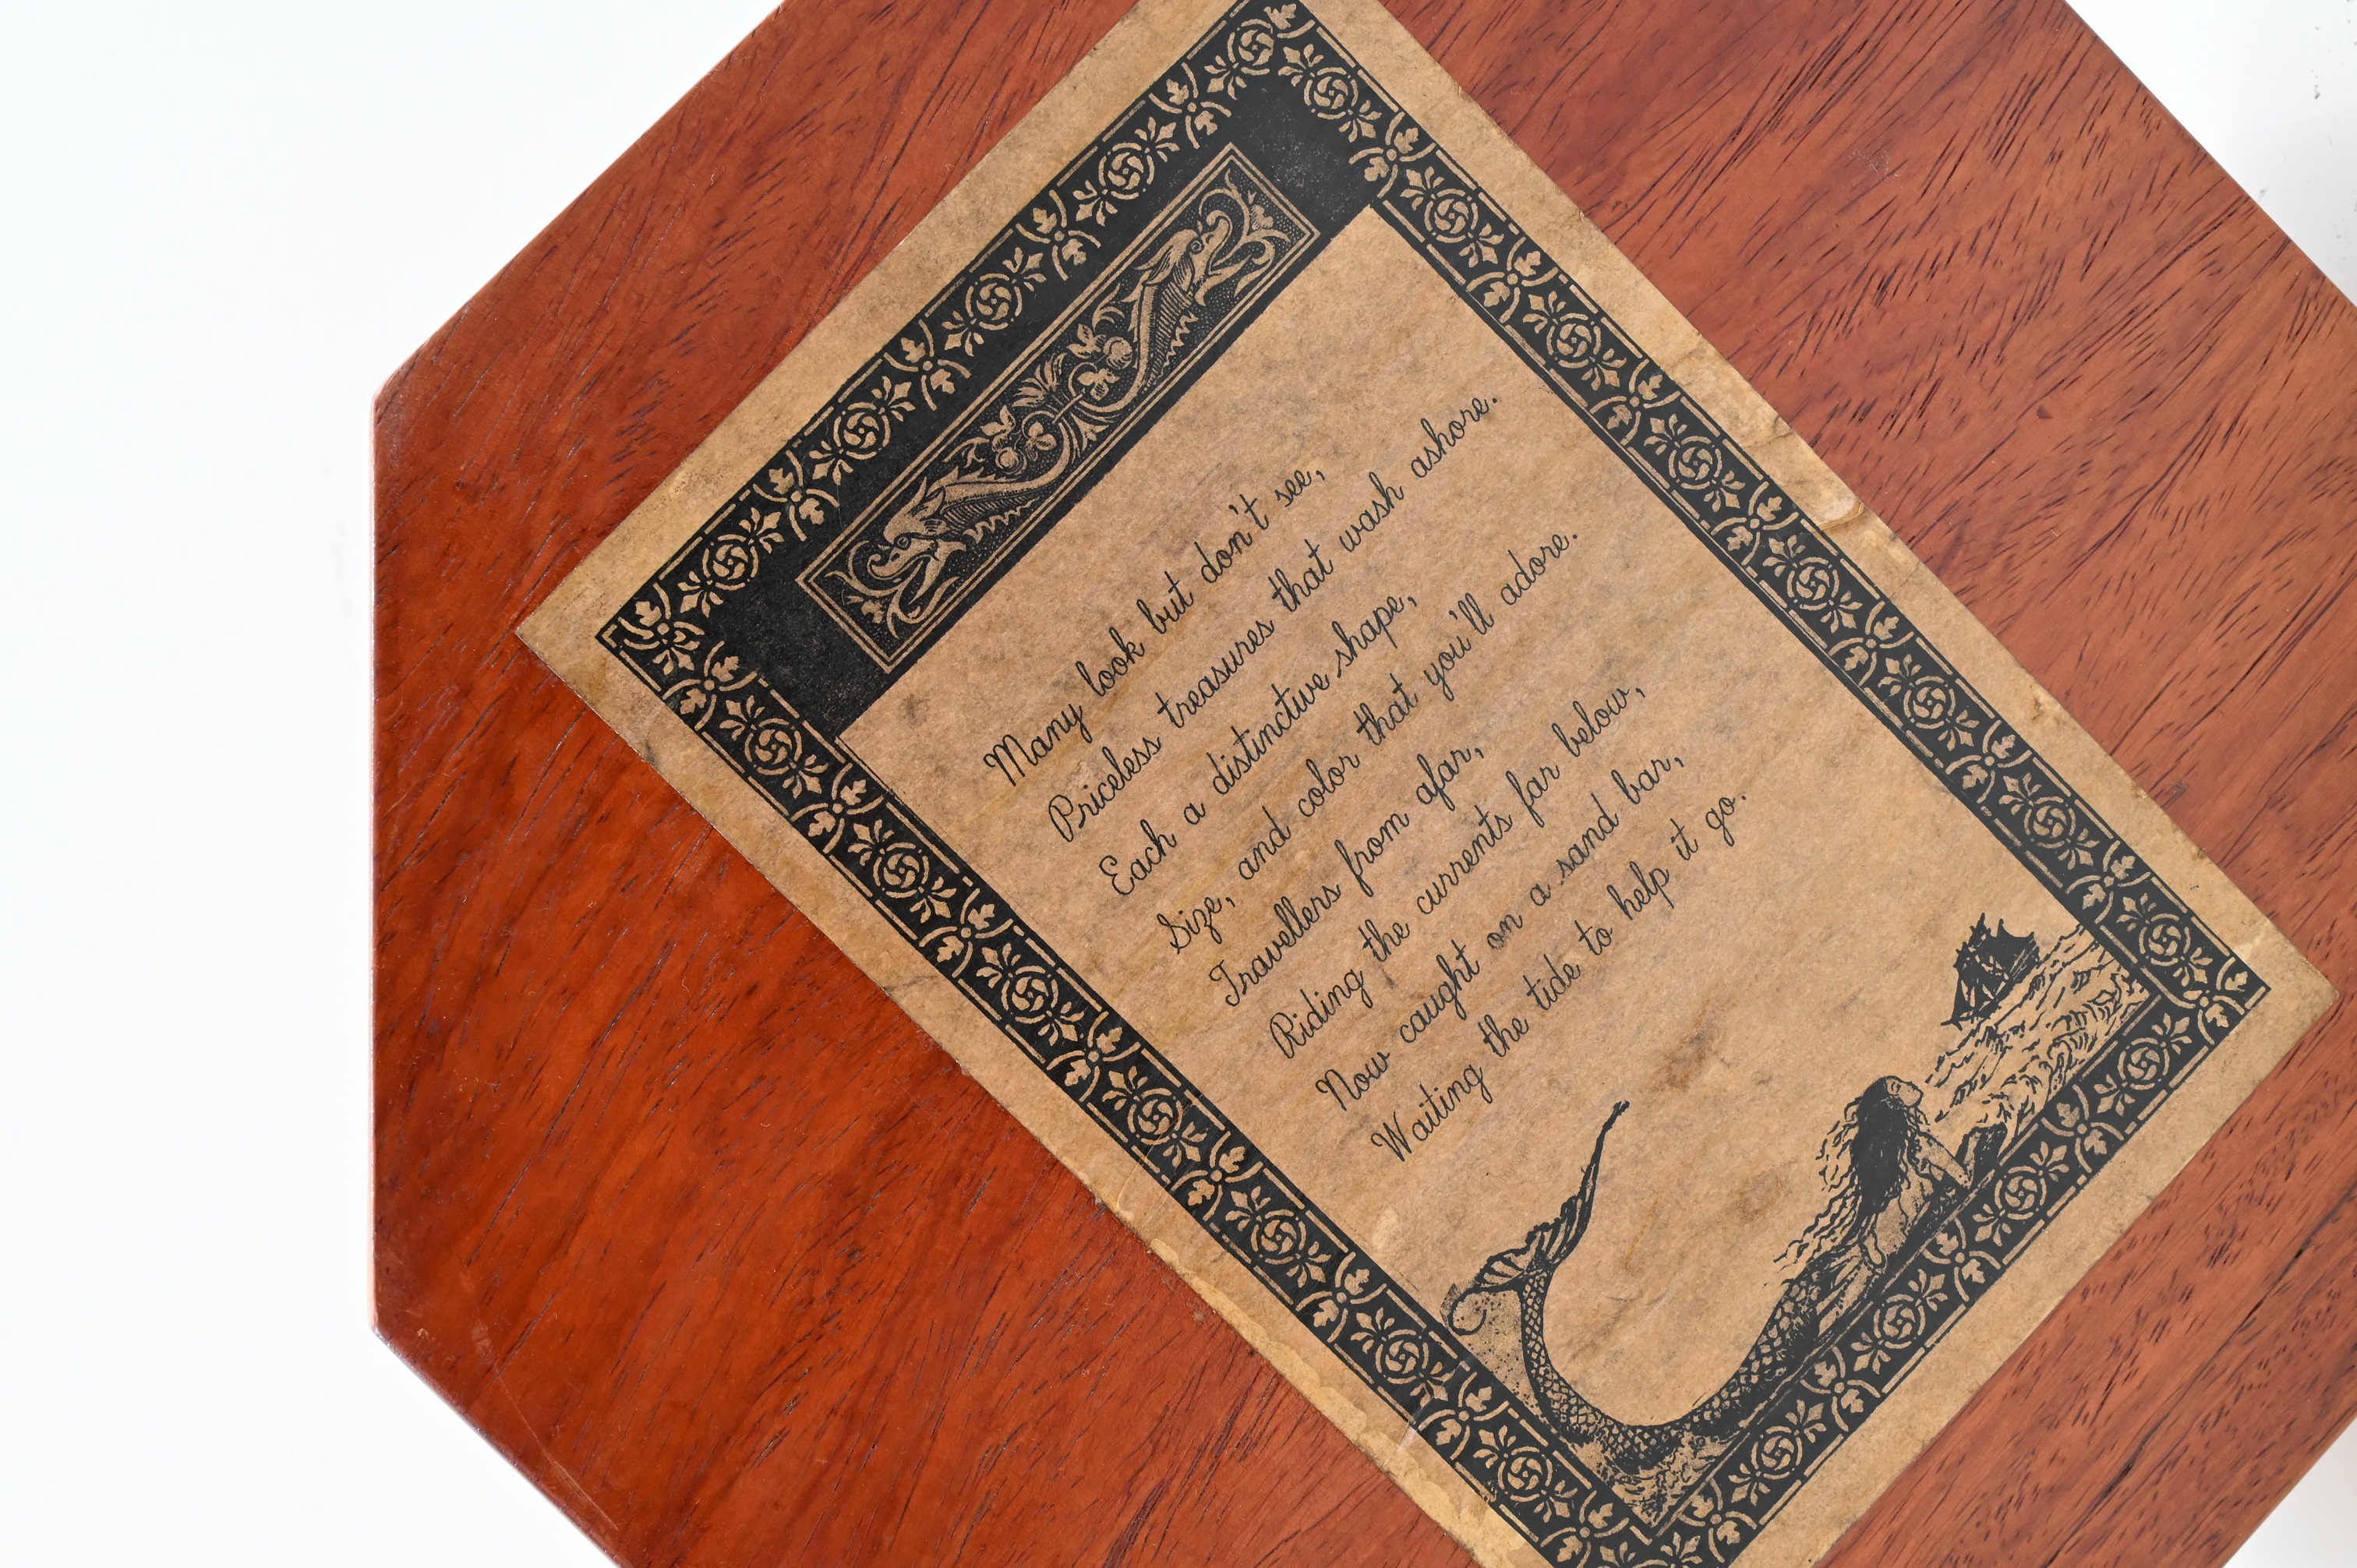 Many look but don't see,
Priceless treasures that wash ashore.
Each a distinctive shape,
Size, and color that you'll adore.
Travellers from afar,
Riding the currents far below,
Now caught on a sand bar,
Waiting the tide to help it go.